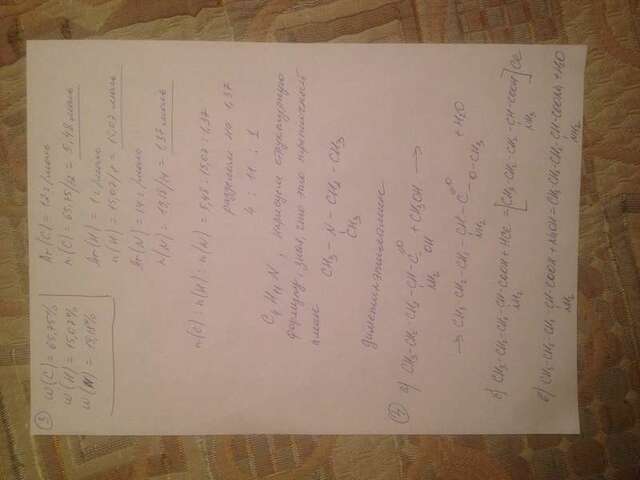 3
w(C) = 65,75%
w(H) = 15,07%
w(N) = 19,18%
Ar(C) = 12 г/моль
n(C) = 65,75/12 = 5,48 моль
Ar(H) = 1 г/моль
n(H) = 15,07/1 = 15,07 моль
Ar(N) = 14 г/моль
n(N) = 19,18/14 = 1,37 моль
n(C) : n(H) : n(N) = 5,48 : 15,07 : 1,37
разделим на 1,37
4 : 11 : 1
C4H11N, нарисуем структурную
формулу, зная, что это третичный
амин
CH3 – N – CH2 – CH3
CH3
диметилэтиламин
5
а) CH3-CH2-CH2-CH-C=O OH + CH3OH →
NH2
→ CH3-CH2-CH2-CH-C=O -O-CH3 + H2O
NH2
б) CH3-CH2-CH2-CH-COOH + HCl = [CH3-CH2-CH2-CH-COOH]Cl
NH2 NH3
в) CH3-CH2-CH2-CH-COOH + NaOH = CH3-CH2-CH2-CH-COONa + H2O
NH2 NH2